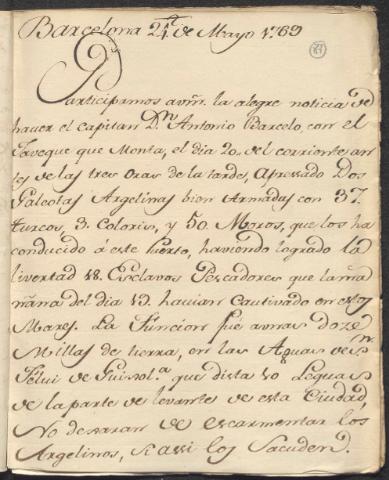 Barcelona 24 de Mayo 1769
Participamos a vm. la alegre noticia de
haver el capitan Dn. Antonio Barcelo, con el
Javeque que Monta, el dia 20. del corriente an
tes de las tres oras de la tarde, apressado Dos
Galeotas Argelinas bien Armadas con 37.
turcos, 3. Coloris, y 50. Moros, que los ha
conducido â este Puerto, haviendo logrado la
livertad 18. Esclavos Pescadores que la ma
ñana del dia 19. havian Cautivado en estos
Mares. La Función fue a unas doze
Millas de tierra, en las Aguas de Sn.
Feliu de Guixola. que dista 10 Leguas
de la parte de levante de esta Ciudad,
No dexaran de escarmentar los
Argelinos, si assi los Sacuden.